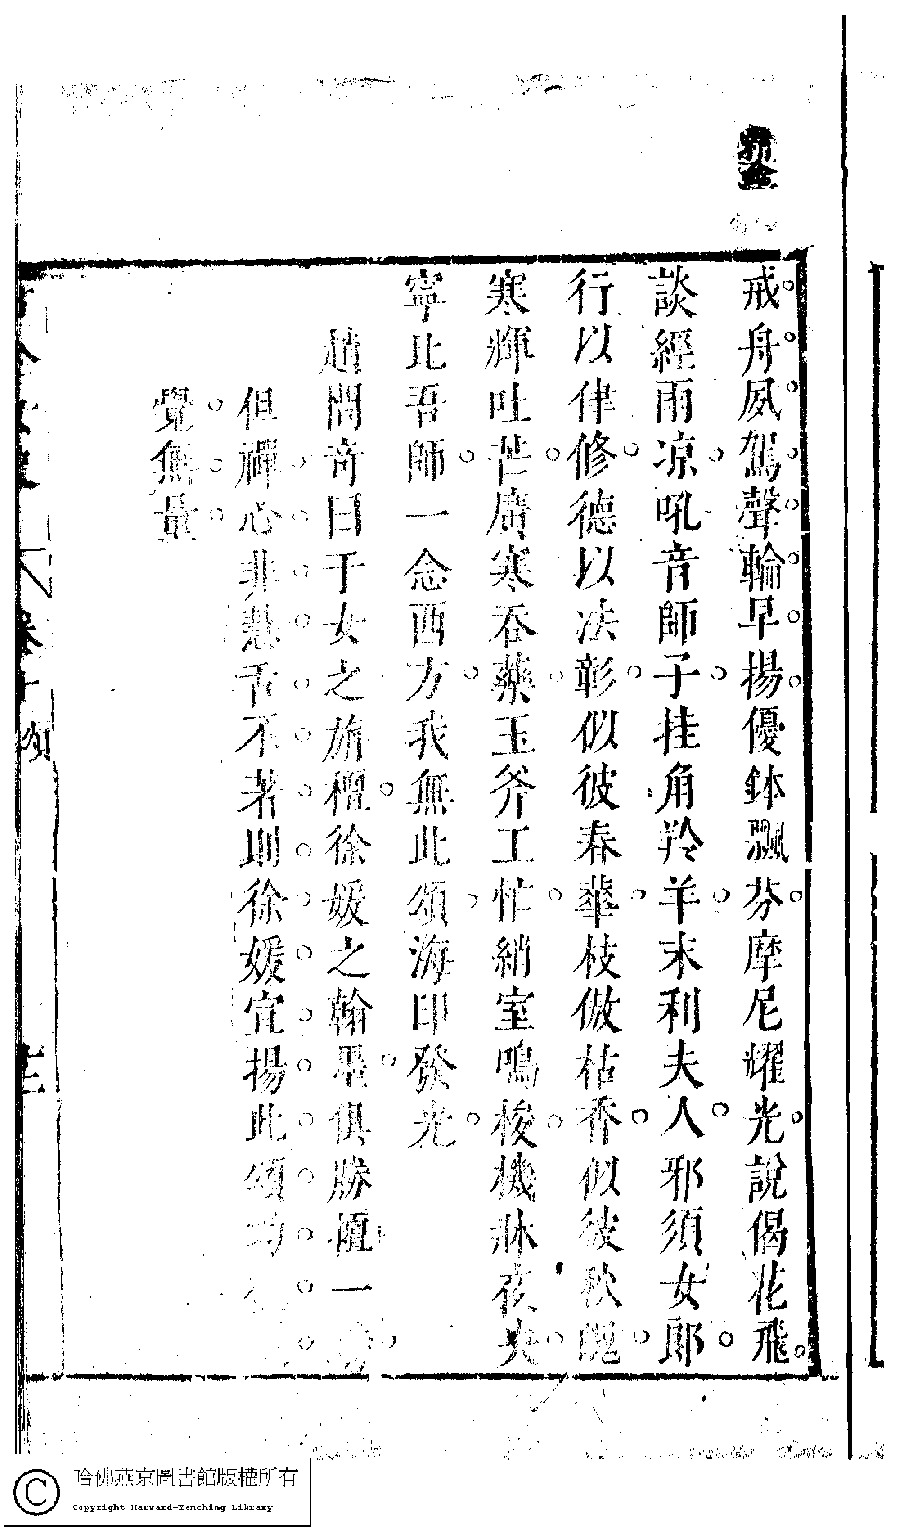 戒舟夙駕聲輪早揚優鉢飄芬摩尼耀光說偈花飛
談經雨凉吼音師子挂角羚羊末利夫人邪須女郎
行以律修德以法彰似彼春華枝倣枯香似彼秋
寒輝吐芒廣寒吞藥玉斧工忙綃室鳴梭機牀夜央
寧比吾師一念西方我無此頌海印發光
趙問奇曰于女之旃檀徐媛之翰墨俱勝一
但禪心非慧舌不著則徐媛宜揚此頌功
覺無量
卷十
哈佛燕京圖書館版權所有
Copyright Harvard-Yenching Library